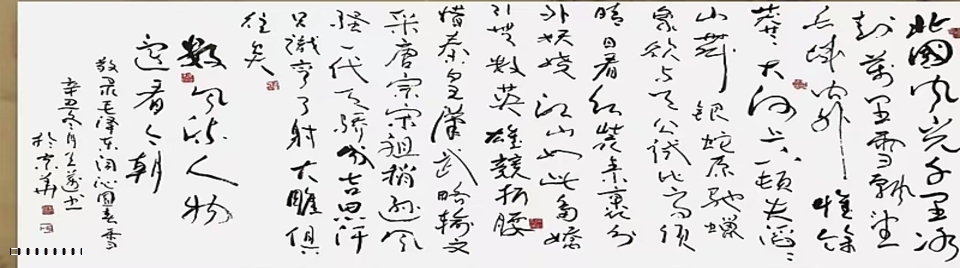 北國风光千里冰
封萬里雪飘望
长城内外惟馀
莽莽大河上下顿失滔滔
山舞银蛇原驰蜡
象欲与天公试比高须
晴日看红装素裹分
外妖娆江山如此多娇
引無数英雄競折腰
惜秦皇漢武略输文
采唐宗宋祖稍逊风
骚一代天骄成吉思汗
只識弯弓射大雕俱
往矣
数风流人物
还看今朝
敬录毛泽东词沁園春雪
辛丑冬月
於京華